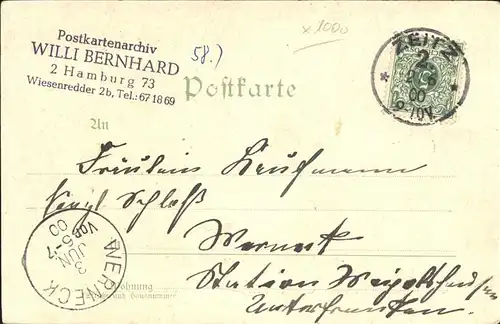 Postkartenarchiv
WILLI BERNHARD
2 Hamburg 73
Wiesenredder 2b, Tel.: 671869
58.)
x1000
ZEITZ
2.
2 6
00
9-10V.
Postkarte
An
Fräulein Kaufmann
Kgl Schloß
Werneck
Station Weigolshausen
Unterfranken.
WERNECK
3
JUN
Vor. 6-7
00
Wohnung
und Hausnummer